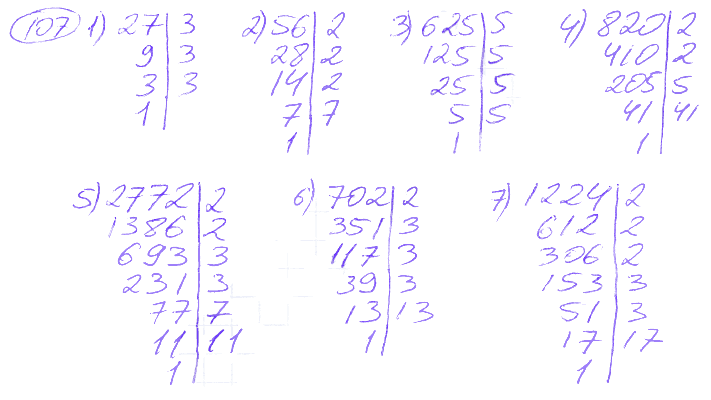 107 1) 27 | 3 2) 56 | 2 3) 625 | 5 4) 820 | 2
9 | 3 28 | 2 125 | 5 410 | 2
3 | 3 14 | 2 25 | 5 205 | 5
1 | 7 | 7 5 | 5 41 | 41
1 | 1 | 1 |
5) 2772 | 2 6) 702 | 2 7) 1224 | 2
1386 | 2 351 | 3 612 | 2
693 | 3 117 | 3 306 | 2
231 | 3 39 | 3 153 | 3
77 | 7 13 | 13 51 | 3
11 | 11 1 | 17 | 17
1 | 1 |